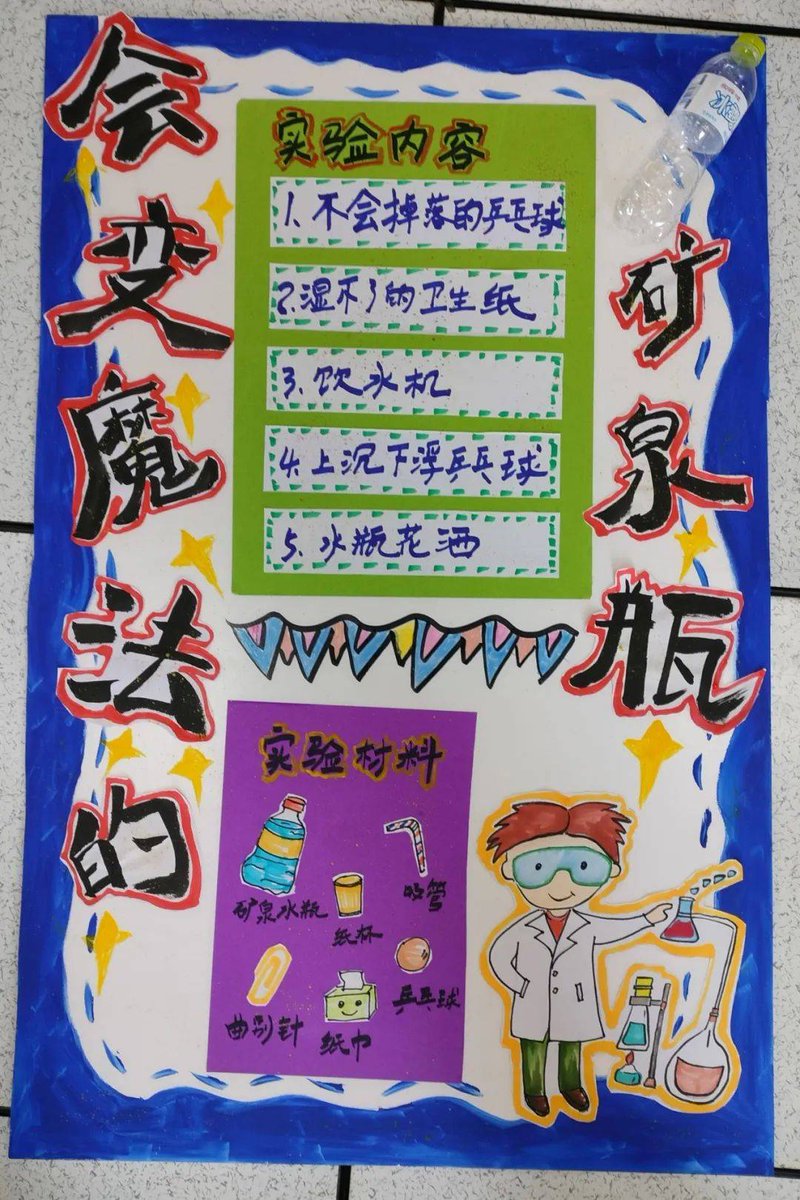 会变魔法的
矿泉瓶
实验内容
1. 不会掉落的乒乓球
2. 湿不了的卫生纸
3. 饮水机
4. 上沉下浮乒乓球
5. 水瓶花洒
实验材料
矿泉水瓶
纸杯
吸管
曲别针
纸巾
乒乓球